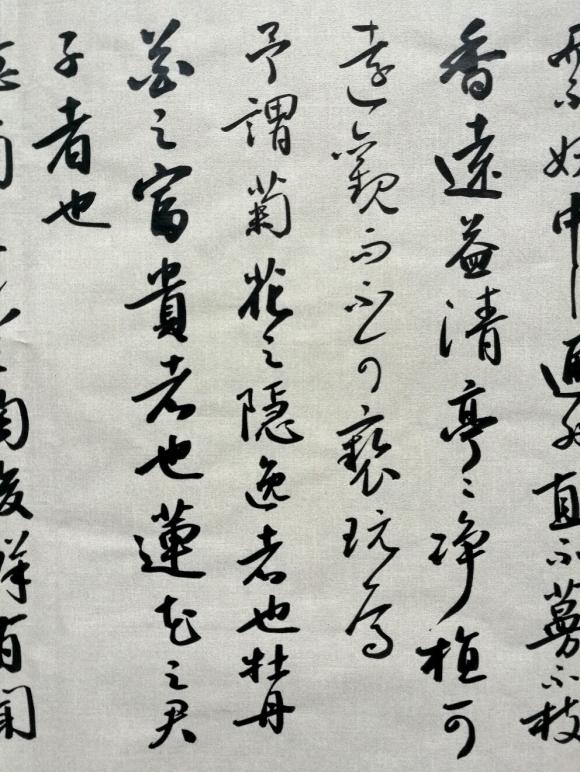 而不妖中通外直不蔓不枝
香遠益清亭々净植可
遠觀而不可褻玩焉
予謂菊花之隱逸者也牡丹
花之富貴者也蓮花之君
子者也
噫菊之愛陶後鮮有聞